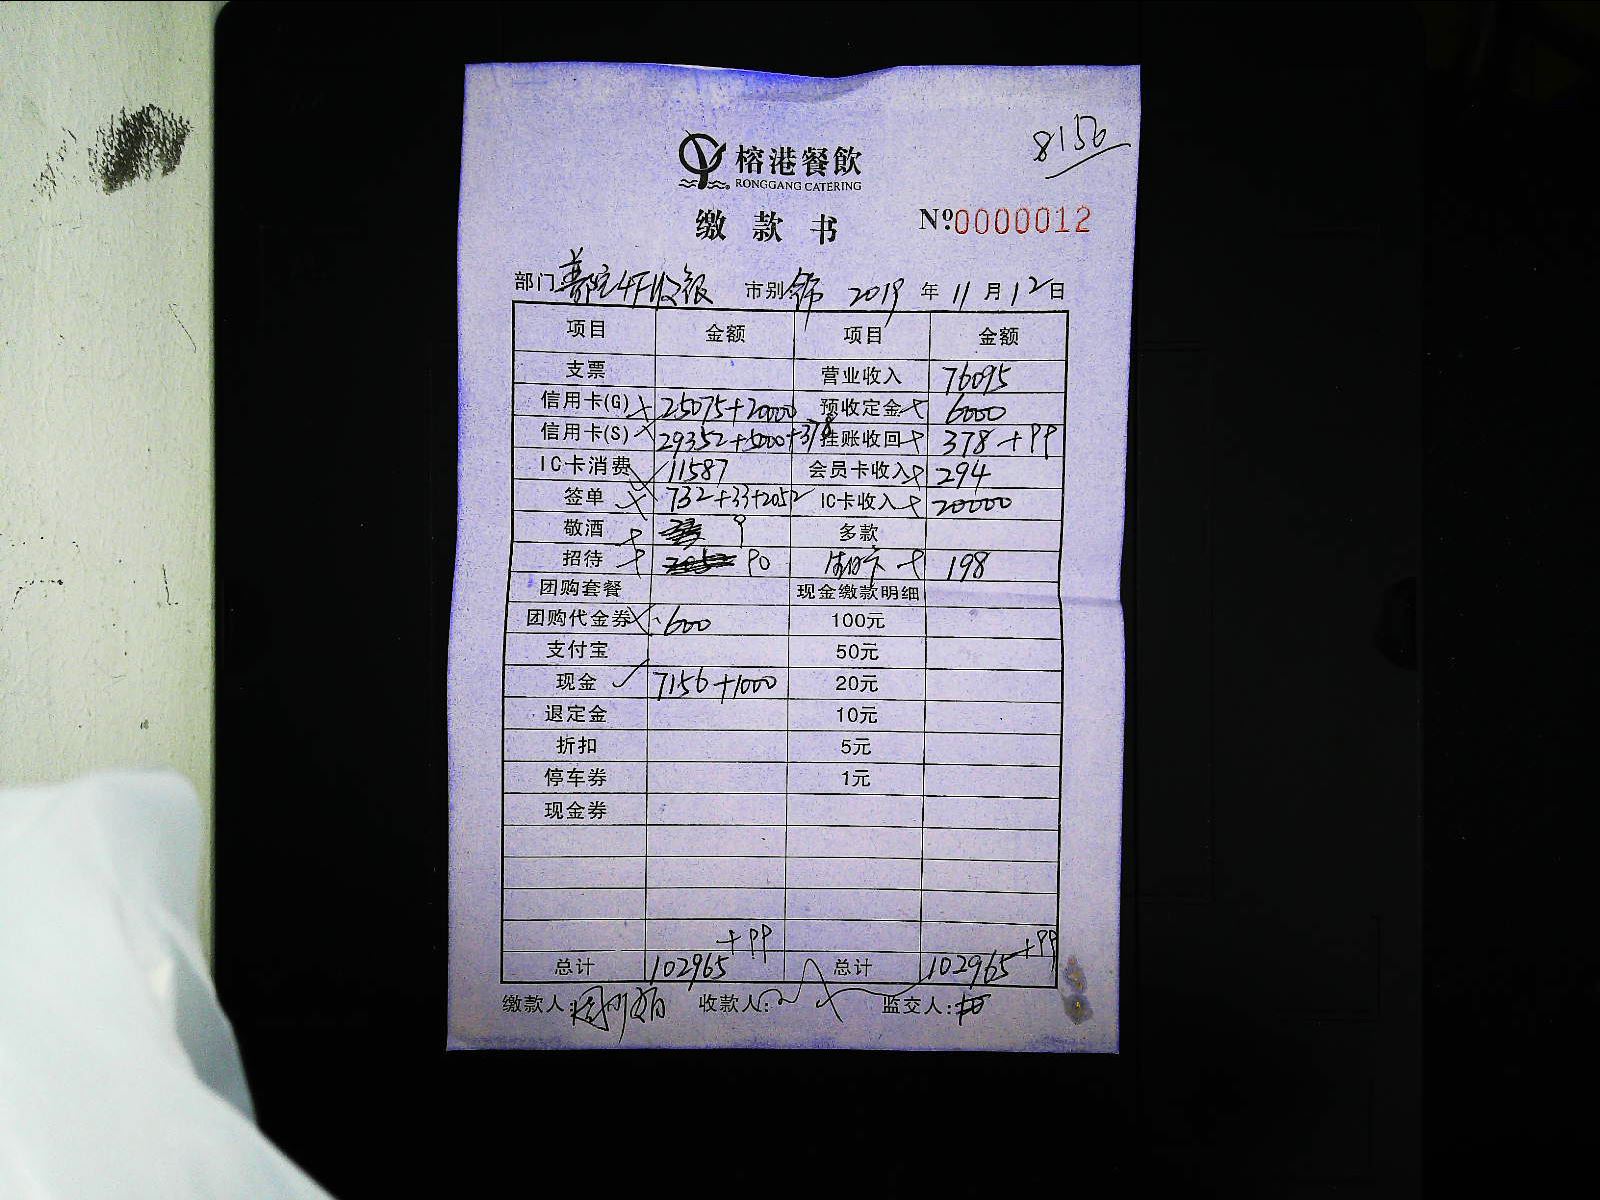 8156
榕港餐飲
RONGGANG CATERING
缴款书
Nº:0000012
部门 4F收银 市别 2019 年 11 月 12 日
项目 金额 项目 金额
支票 营业收入 76095
信用卡(G) 25075+20000 预收定金 6000
信用卡(S) 29352+5000+378 挂账收回 378+99
IC卡消费 11587 会员卡收入 294
签单 732+33+2052 IC卡收入 20000
敬酒 9 多款
招待 90 198
团购套餐 现金缴款明细
团购代金券 600 100元
支付宝 50元
现金 7156+1000 20元
退定金 10元
折扣 5元
停车券 1元
现金券
+99 +99
总计 102965 总计 102965
缴款人: 收款人: 监交人: